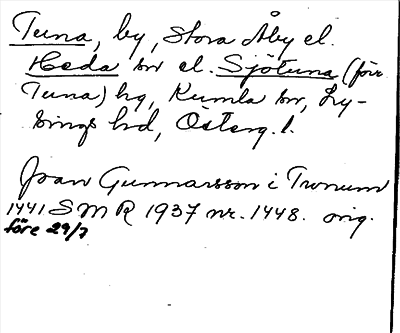 Tuna, by, Stora Åby el.
Heda sn el. Sjötuna (förr
Tuna) hg, Kumla sn, Ly-
sings hd, Österg. l.
Joan Gunnarsson i Twnum
1441 SMR 1937 nr. 1448. orig.
före 29/7